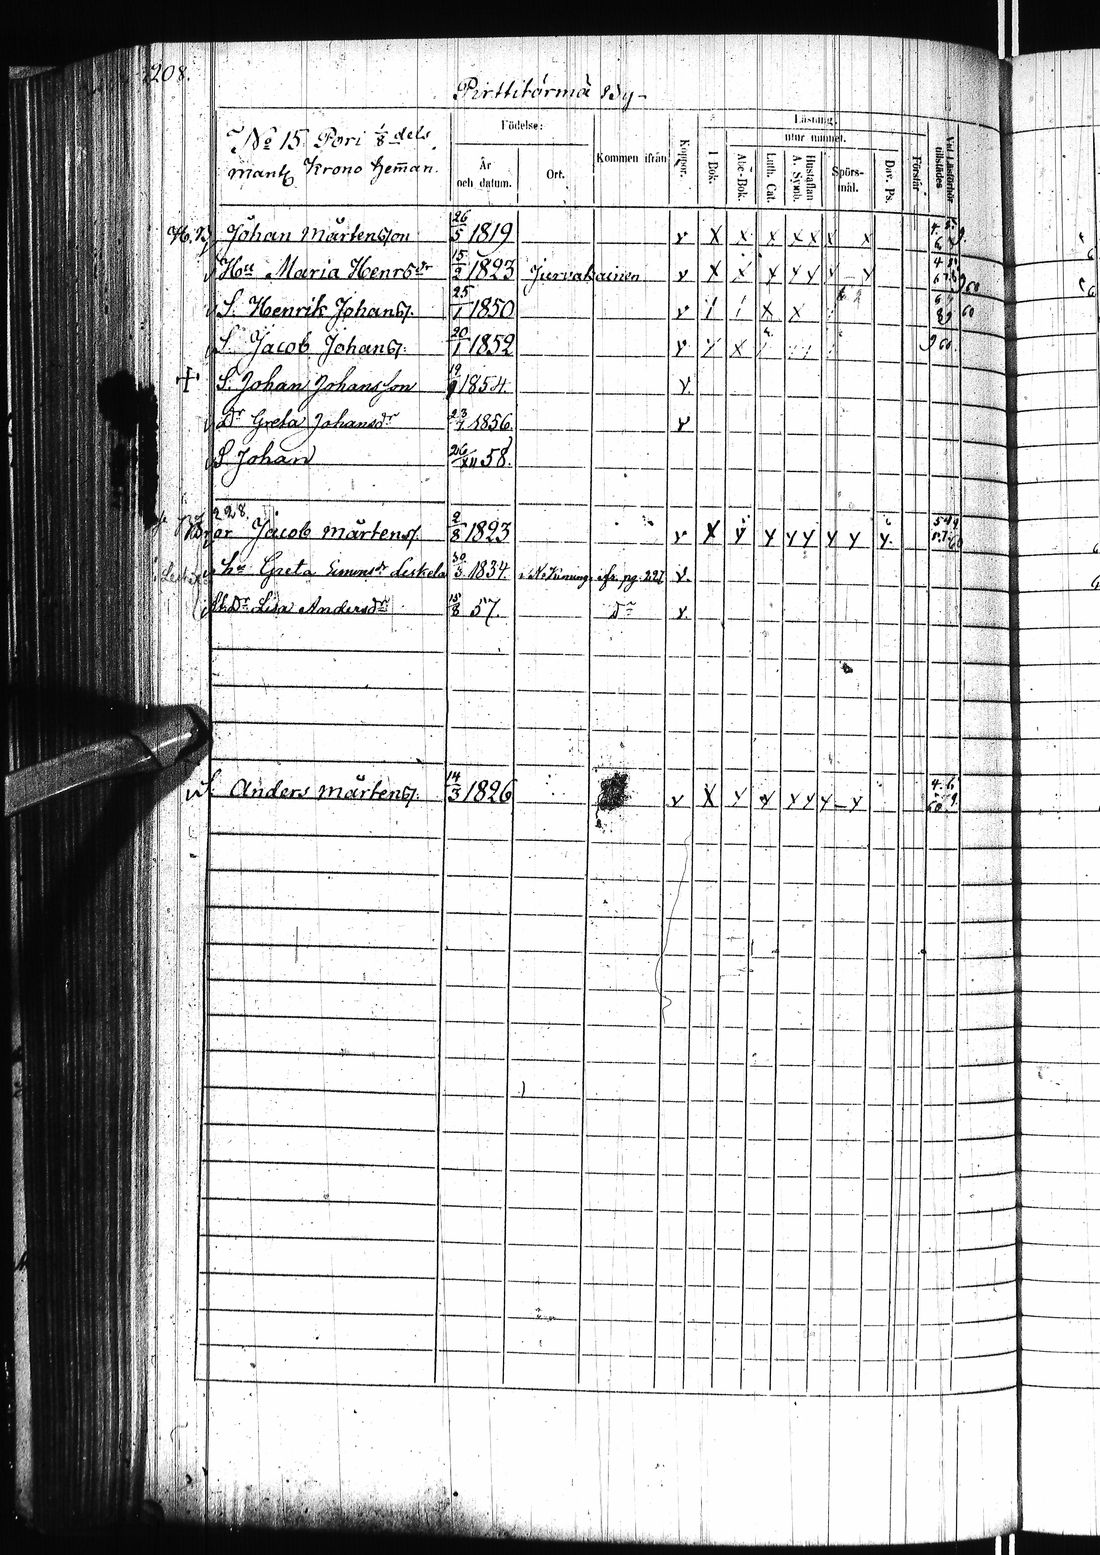 208.
Pirttitörmä By
No 15 Pori 1/8 dels
mantl Krono hem̄an.
Födelse:
År och datum.
Ort.
Kommen ifrån
Koppor.
Läsning,
utur minnet.
I Bok.
Abc-Bok.
Luth. Cat.
Hustaflan A. Symb.
Spörs-mål.
Dav. Ps.
Förstår
Vid Läsförhör tillstädes
Johan Mårtensson 26/5 1819 v X x x x x x x
Hu Maria Henrsdr 15/2 1823 Jurvakainen v X x x y y y y
S. Henrik Johans. 25/1 1850 v x x 60
S. Jacob Johans. 20/1 1852 v x 60
+ S. Johan Johansson 19 1854 v
Dr Greta Johansdr 23/7 1856 v
S Johan 26/XII 58.
228
Bror Jacob Mårtens. 2/8 1823 v X y y y y y y y
hu Greta Simonsdr 30/3 1834. fr. pg. 227 v.
Dr Lisa Andersdr 15/8 57. Dr v.
Anders Mårtens. 14/3 1826 v X y y y y y y